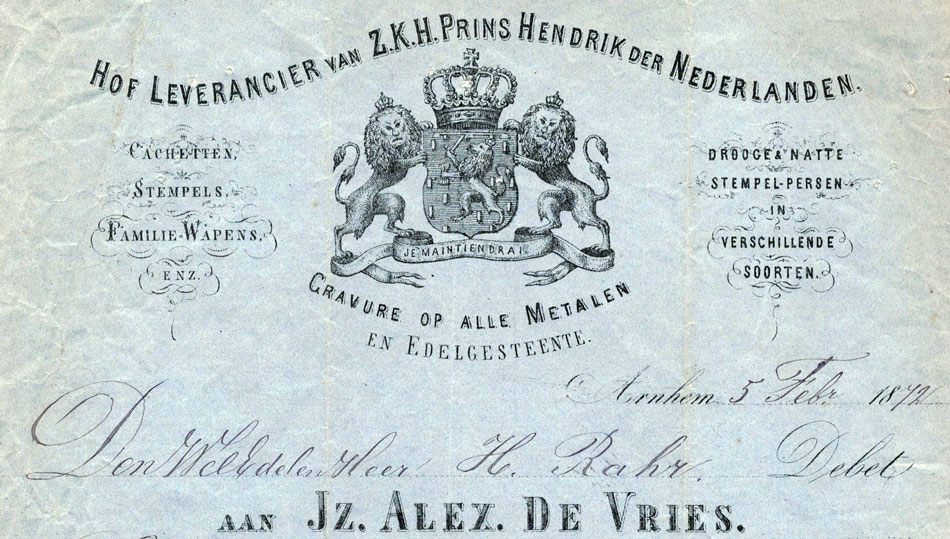 HOF LEVERANCIER VAN Z.K.H. PRINS HENDRIK DER NEDERLANDEN.
CACHETTEN,
STEMPELS,
FAMILIE-WAPENS,
ENZ.
JE MAINTIENDRAI
DROOGE & NATTE
STEMPEL-PERSEN
IN
VERSCHILLENDE
SOORTEN.
GRAVURE OP ALLE METALEN
EN EDELGESTEENTE.
Arnhem 5 Febr 1872
Den WelEdelen Heer H. Rahr. Debet
AAN JZ. ALEX. DE VRIES.